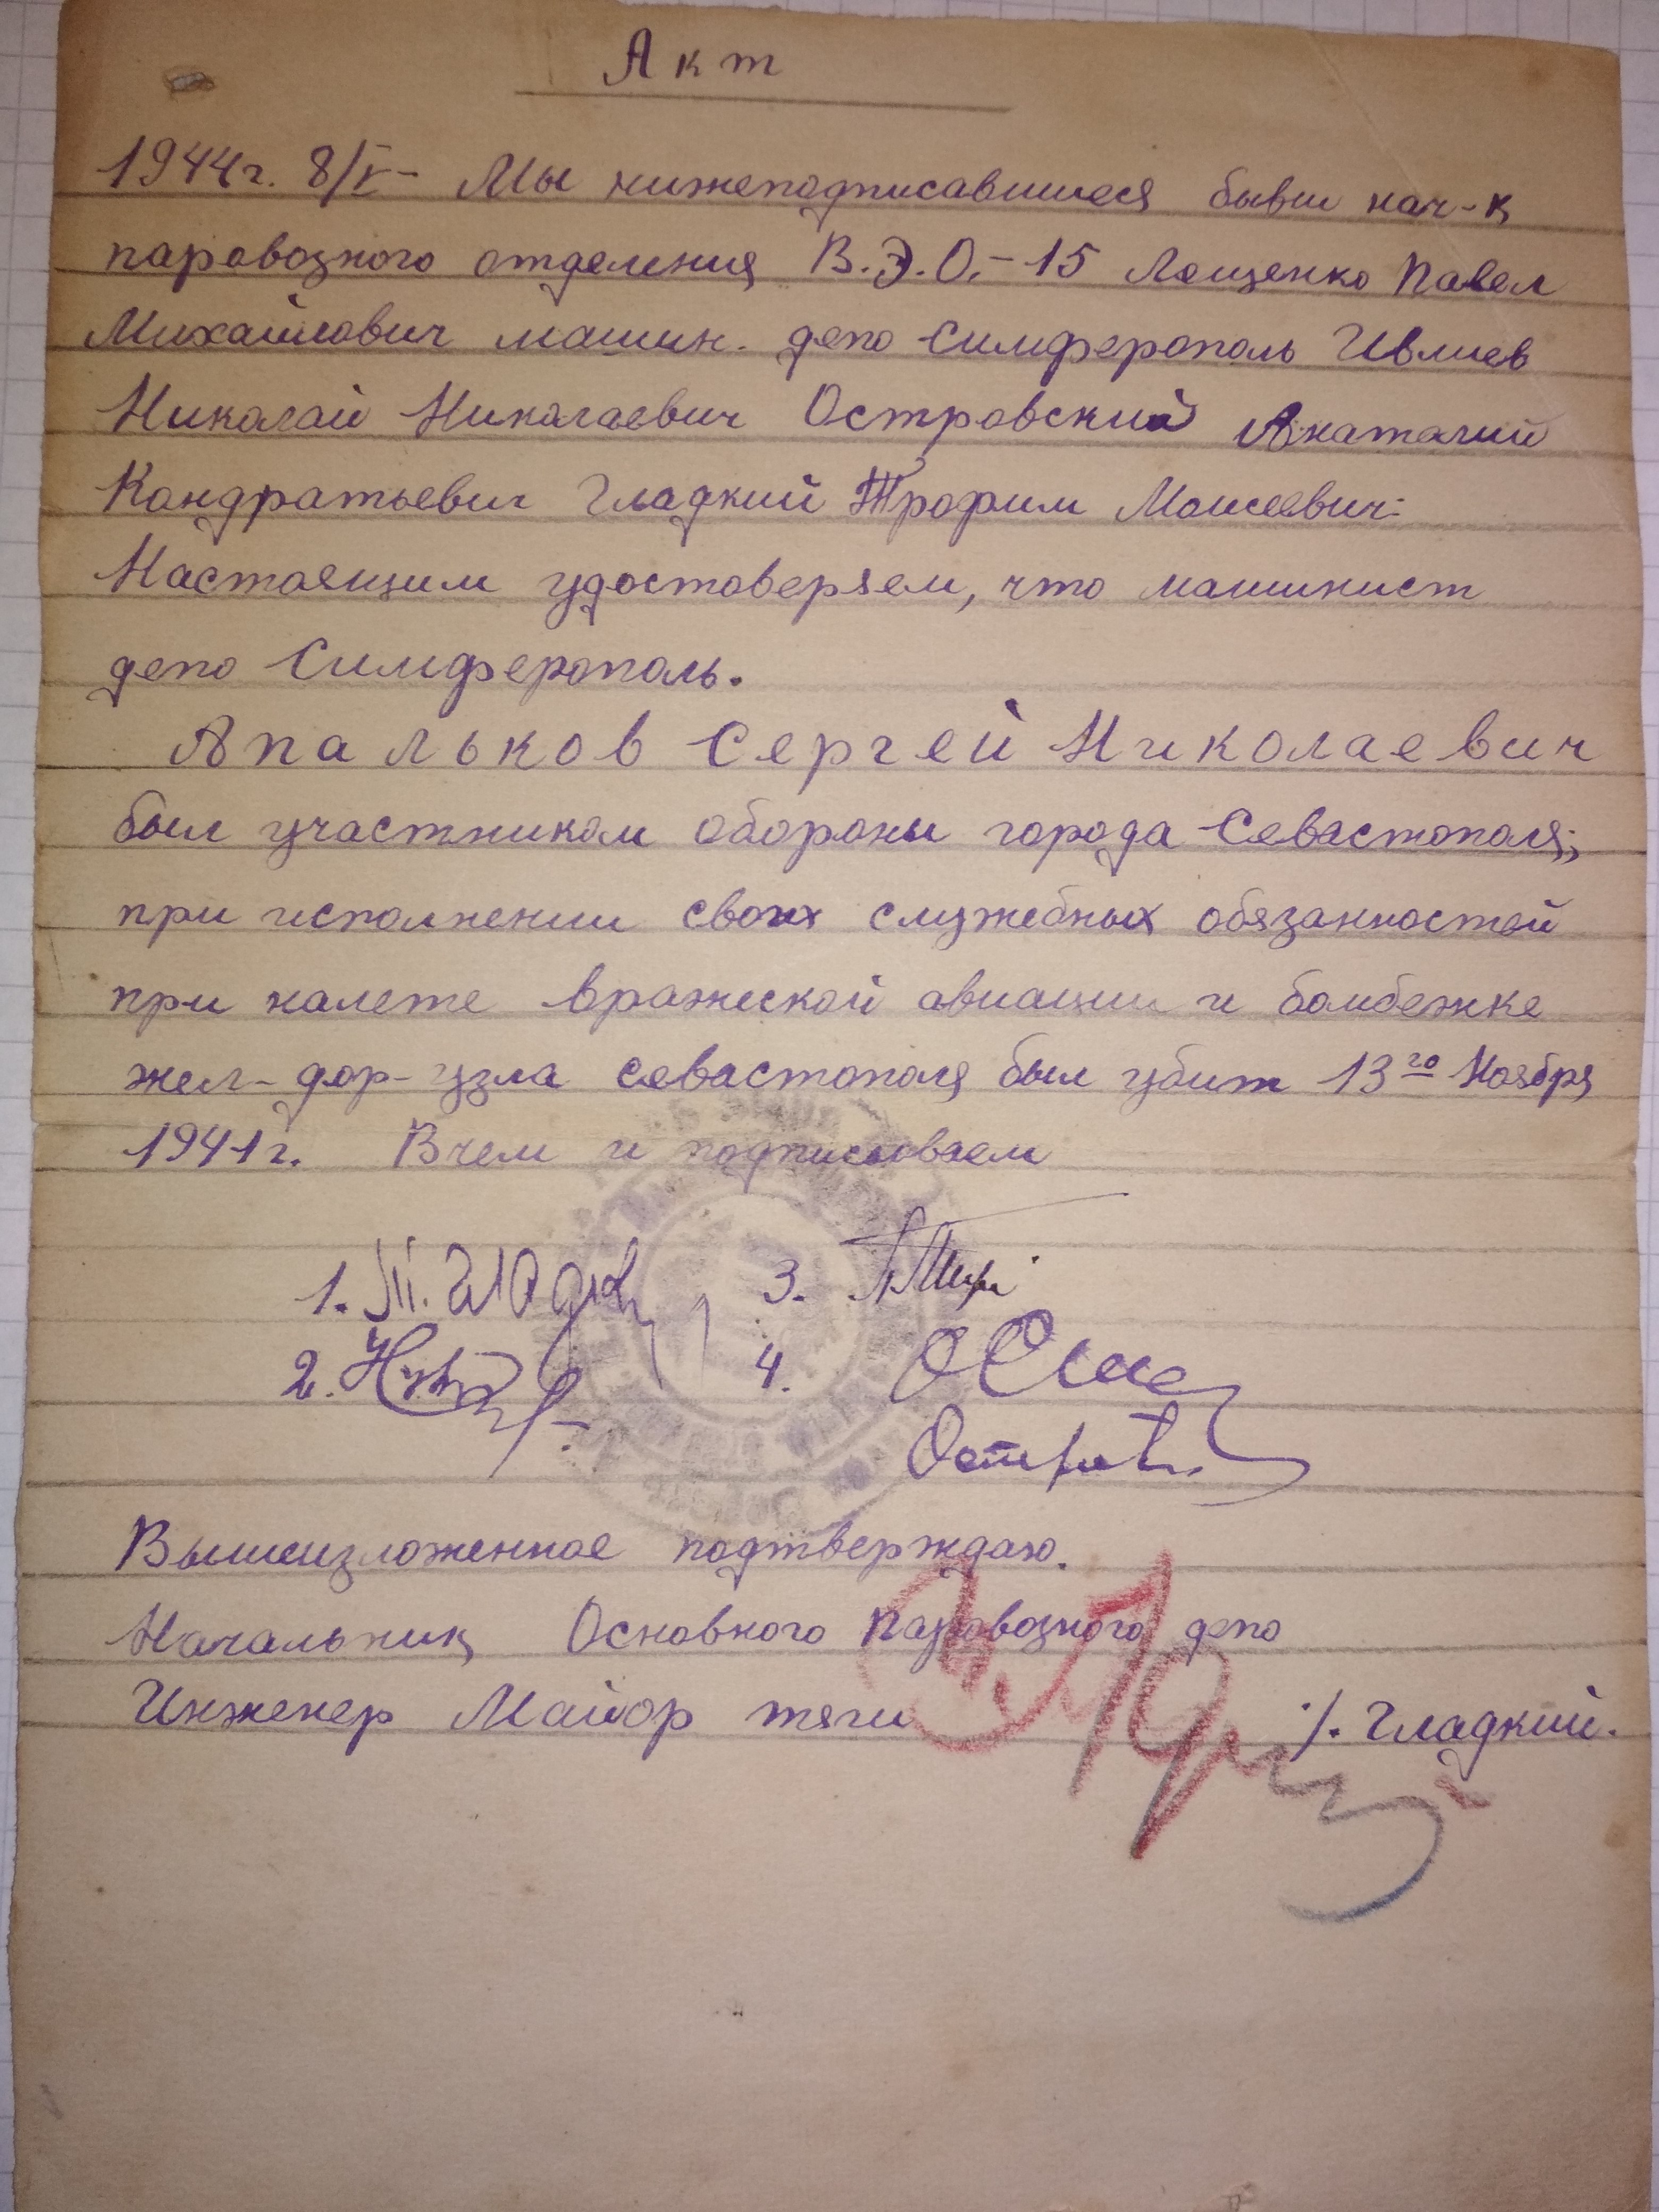 Акт
1944г. 8/V- Мы нижеподписавшиеся бывш нач-к
паровозного отделения В.Э.О.-15 Лещенко Павел
Михайлович машин. депо Симферополь Ивлиев
Николай Николаевич Островский Анаталий
Кондратьевич Гладкий Трофим Моисеевич:
Настоящим удостоверяем, что машинист
депо Симферополь.
Апальков Сергей Николаевич
был участником обороны города Севастополя;
при исполнении своих служебных обязанностей
при налете вражеской авиации и бомбежке
жел-дор-узла Севастополя был убит 13го Ноября
1941г. В чем и подписываем
1. Т. Гладк
3.
2.
4.
Вышеизложенное подтверждаю.
Начальник Основного Паровозного депо
Инженер Майор тяги /. Гладкий.